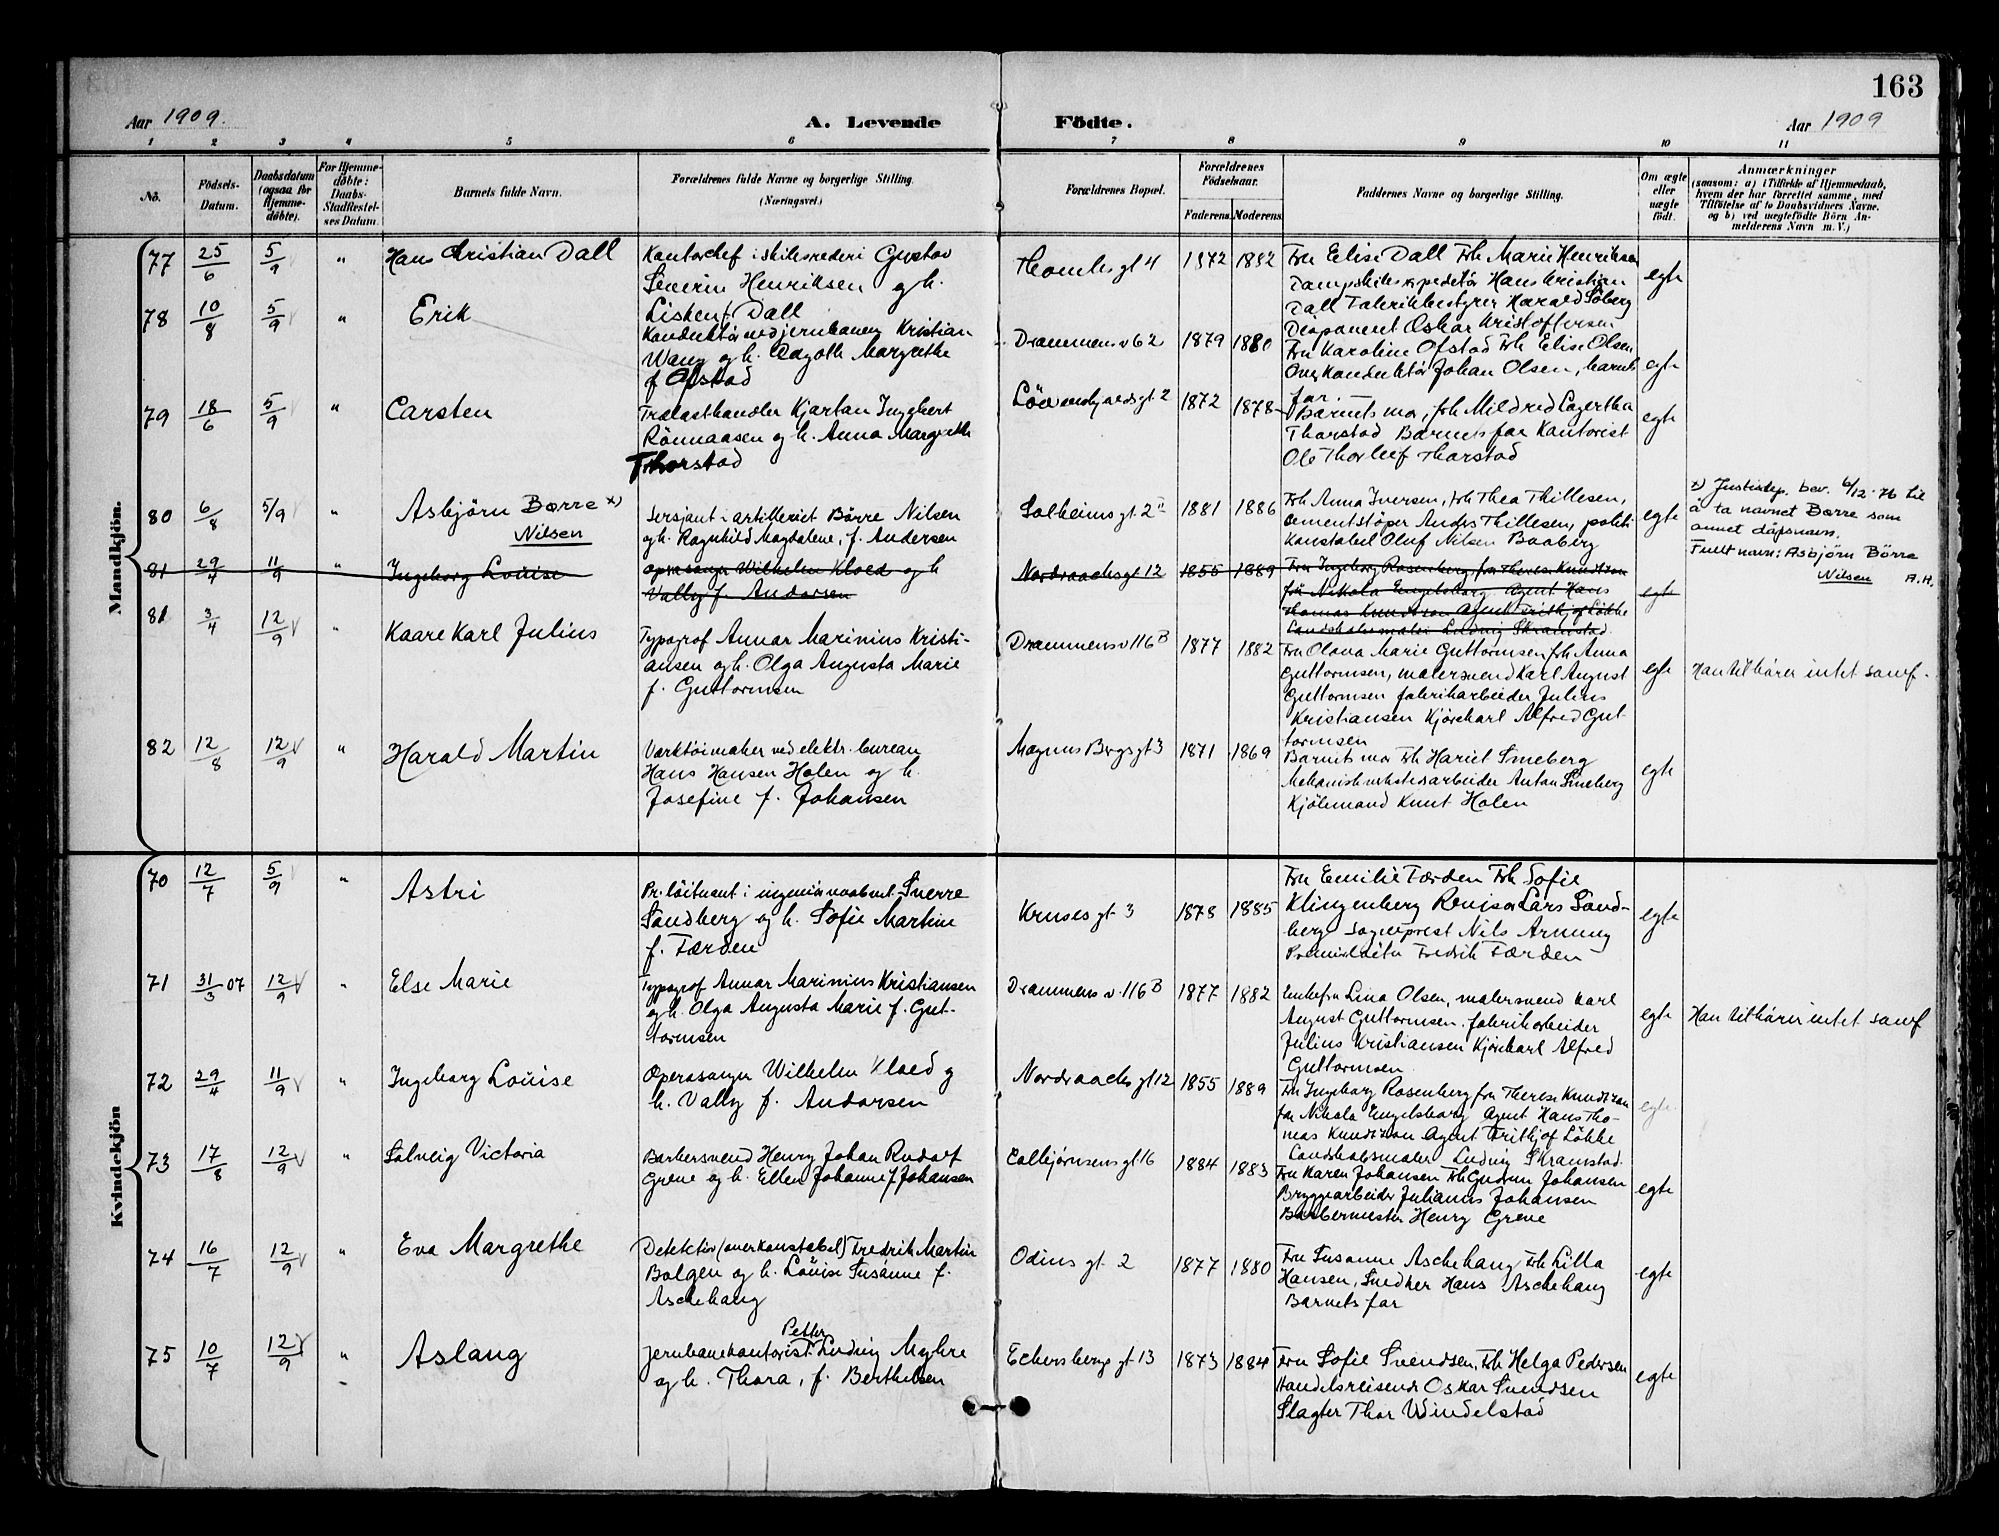 163
Aar 1909. A. Levende Födte. Aar 1909
1 2 3 4 5 6 7 8 9 10 11
No.
Födsels-
Datum.
Daabsdatum
(ogsaa for
Hjemme-
döbte).
For Hjemme-
döbte:
Daabs-
Stadfæstel-
ses Datum.
Barnets fulde Navn.
Forældrenes fulde Navne og borgerlige Stilling.
(Næringsvei.)
Forældrenes Bopæl.
Forældrenes
Födselsaar.
Faderens. Moderens.
Faddernes Navne og borgerlige Stilling.
Om ægte
eller
uægte
född.
Anmærkninger
(saasom: a) i Tilfælde af Hjemmedaab,
hvem der har forrettet samme, med
Tilföielse af to Daabsvidners Navne.
og b) ved uægtefödte Börn An-
melderens Navn m. V.)
Mandkjön.
77 25/6 5/9 " Hans Christian Dall
Kontorchef i skibsrederi Gustav
Severin Henriksen og h.
Lisken f. Dall
Thomles gt 4 1872 1882
Fru Elise Dall Frk Marie Henriksen
Dampskibsexpeditör Hans Kristian
Dall Fabrikbestyrer Harald Soberg
egte
78 10/8 5/9 " Erik
Konduktör ved jernbanen Kristian
Wang og h. Aagoth Margrethe
f Ofstad
Drammensv 62 1879 1880
Disponent Oskar Kristoffersen
Fru Karoline Ofstad Frk Elise Olsen
Overkonduktör Johan Olsen, barnets
far.
egte
79 18/6 5/9 " Carsten
Trælasthandler Kjartan Ingebert
Rönnaasen og h. Anna Margrethe
Thorstad
Lövenskjoldsgt 2 1872 1878
Barnets mor, frk Mildred Lagertha
Thorstad Barnets far Kontorist
Ole Thorleif Thorstad
egte
80 6/8 5/9 " Asbjörn Børre x)
Nilsen
Sersjant i artilleriet Börre Nilsen
og h. Ragnhild Magdalene, f. Andersen
Solheims gt 2 II 1881 1886
Frk Anna Iversen, frk Thea Thillesen,
cementstöper Anders Thillesen, politi-
konstabel Oluf Nilsen Baaberg
egte
x) Justisdep. bev. 6/12-76 til
å ta navnet Børre som
annet døpsnavn.
Fullt navn: Asbjørn Børre
Nilsen A.H.
81 29/4 11/9 " Ingeborg Louise
Operasanger Wilhelm Kloed og h
Vally f. Andersen
Nordraachsgt 12 1855 1889
Fru Ingeborg Rosenberg, fru Therese Knudtzon
frk Nikola Engelsborg Agent Hans
Thomas Knudtzon Agent Frithjof Løkke
Landskabsmaler Ludvig Skramstad.
egte
81 3/4 12/9 " Kaare Karl Julius
Typograf Annar Marinius Kristi-
ansen og h. Olga Augusta Marie
f. Guttormsen
Drammensv 116 B 1877 1882
Fru Olava Marie Guttormsen frk Anna
Guttormsen, malersvend Karl August
Guttormsen fabrikarbeider Julius
Kristiansen Kjörekarl Alfred Gut-
tormsen
egte
Han tilhörer intet samf.
82 12/8 12/9 " Harald Martin
Værktöimaker ved elektr. bureau
Hans Hansen Holen og h.
Josefine f. Johansen
Magnus Bergs gt 3 1871 1869
Barnets mor Frk Hariet Smeberg
Mekanisk verkstedsarbeider Anton Smeberg
Kjölemand Knut Holen
egte
Kvindekjön
70 12/7 5/9 " Astri
Pr. löitnant i ingeniörvaabnet Sverre
Sandberg og h. Sofie Martine
f. Færden
Kruses gt 3 1878 1885
Fru Emilie Færden Frk Sofie
Klingenberg Revisor Lars Sand-
berg Sogneprest Nils Arnung
Premierlöitn Fredrik Færden
egte
71 31/3 07 12/9 " Else Marie
Typograf Annar Marinius Kristiansen
og h. Olga Augusta Marie f. Gut-
tormsen
Drammens v. 116 B 1877 1882
Enkefru Lina Olsen, malersvend Karl
August Guttormsen, fabrikarbeider
Julius Kristiansen Kjörekarl Alfred
Guttormsen
egte
Han tilhörer intet samf
72 29/4 11/9 " Ingeborg Louise
Operasanger Wilhelm Kloed og
h. Vally f. Andersen
Nordraachs gt 12 1855 1889
Fru Ingeborg Rosenberg fru Therese Knudtzon
frk Nikola Engelsborg Agent Hans Tho-
mas Knudtzon Agent Frithjof Løkke
Landskabsmaler Ludvig Skramstad.
egte
73 17/8 12/9 " Solveig Victoria
Barbersvend Henry Johan Rudolf
Greve og h. Ellen Johanne f Johansen
Colbjörnsens gt 16 1884 1883
Fru Karen Johansen Frk Gudrun Johansen
Bryggearbeider Julianus Johansen
Barbermester Henry Greve
egte
74 16/7 12/9 " Eva Margrethe
Detektiv (overkonstabel) Fredrik Martin
Bolgen og h. Louise Susanne f.
Aschehaug
Odins gt 2 1877 1880
Fru Susanne Aschehaug Frk Lilla
Hansen, Snedker Hans Aschehaug
Barnets far
egte
75 10/7 12/9 " Aslaug
Petter
Jernbanekontorist Ludvig Myhre
og h. Thora, f. Berthelsen
Eckersbergs gt 13 1873 1884
Fru Sofie Svendsen, Frk Helga Pedersen
Handelsreisende Oskar Svendsen
Slagter Thor Windelstad
egte